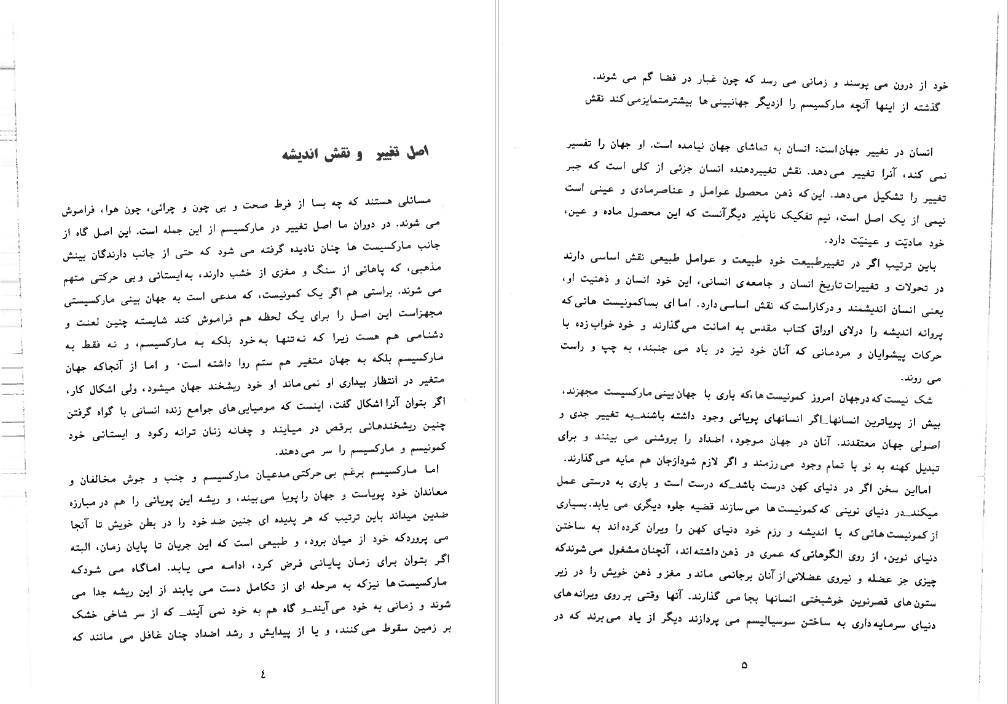 اصل تغییر و نقش اندیشه
مسائلی هستند که چه بسا از فرط صحت و بی چون و چرائی، چون هوا، فراموش
می شوند. در دوران ما اصل تغییر در مارکسیسم از این جمله است. این اصل گاه از
جانب مارکسیست ها چنان نادیده گرفته می شود که حتی از جانب دارندگان بینش
مذهبی، که پاهائی از سنگ و مغزی از خشب دارند، به‌ایستائی و بی حرکتی متهم
می شوند. براستی هم اگر یک کمونیست، که مدعی است به جهان بینی مارکسیستی
مجهزاست این اصل را برای یک لحظه هم فراموش کند شایسته چنین لعنت و
دشنامی هم هست زیرا که نه‌تنها به‌خود بلکه به مارکسیسم، و نه فقط به
مارکسیسم بلکه به جهان متغیر هم ستم روا داشته است۰ و اما از آنجاکه جهان
متغیر در انتظار بیداری او نمی‌ماند او خود ریشخند جهان میشود، ولی اشکال کار،
اگر بتوان آنرا اشکال گفت، اینست که مومیایی‌های جوامع زنده انسانی با گواه گرفتن
چنین ریشخندهائی برقص در میایند و چغانه زنان ترانه رکود و ایستائی خود
کمونیسم و مارکسیسم را سر می‌دهند.
اما مارکسیسم برغم بی‌حرکتی مدعیان مارکسیسم و جنب و جوش مخالفان و
معاندان خود پویاست و جهان را پویا می‌بیند، و ریشه این پویائی را هم در مبارزه
ضدین میداند باین ترتیب که هر پدیده ای جنین ضد خود را در بطن خویش تا آنجا
می پروردکه خود از میان برود، و طبیعی است که این جریان تا پایان زمان، البته
اگر بتوان برای زمان پایانی فرض کرد، ادامه می یابد. اماگاه می شودکه
مارکسیست‌ها نیزکه به مرحله ای از تکامل دست می یابند از این ریشه جدا می
شوند و زمانی به خود می‌آیند_و گاه هم به خود نمی آیند_ که از سر شاخی خشک
بر زمین سقوط می‌کنند، و یا از پیدایش و رشد اضداد چنان غافل می مانند که
٤
خود از درون می پوسند و زمانی می رسد که چون غبار در فضا گم می شوند.
گذشته از اینها آنچه مارکسیسم را ازدیگر جهانبینی ها بیشترمتمایزمی کند نقش
انسان در تغییر جهان‌است: انسان به تماشای جهان نیامده است. او جهان را تفسیر
نمی کند، آنرا تغییر می‌دهد. نقش تغییردهنده انسان جزئی از کلی است که جبر
تغییر را تشکیل می‌دهد. این‌که ذهن محصول عوامل و عناصرمادی و عینی است
نیمی از یک اصل است، نیم تفکیک ناپذیر دیگرآنست که این محصول ماده و عین،
خود مادیّت و عینیّت دارد.
باین ترتیب اگر در تغییرطبیعت خود طبیعت و عوامل طبیعی نقش اساسی دارند
در تحولات و تغییرات تاریخ انسان و جامعه‌ی انسانی، این خود انسان و ذهنیت او،
یعنی انسان اندیشمند و درکاراست‌که نقش اساسی دارد. اما ای بساکمونیست هائی‌که
پروانه اندیشه را درلای اوراق کتاب مقدس به امانت می‌گذارند و خود خواب زده با
حرکات پیشوایان و مردمانی که آنان خود نیز در باد می جنبند، به چپ و راست
می روند.
شک نیست که درجهان امروز کمونیست ها،که یاری با جهان‌بینی مارکسیست مجهزند،
بیش از پویاترین انسانها_اگر انسانهای پویائی وجود داشته باشند_به تغییر جدی و
اصولی جهان معتقدند. آنان در جهان موجود، اضداد را بروشنی می بینند و برای
تبدیل کهنه به نو با تمام وجود می‌رزمند و اگر لازم شودازجان هم مایه می‌گذارند.
امااین سخن اگر در دنیای کهن درست باشد_که درست است و باری به درستی عمل
میکند_در دنیای نوینی که‌کمونیست‌ها می‌سازند قضیه جلوه دیگری می یابد.بسیاری
از کمونیست هائی‌که با اندیشه و رزم خود دنیای کهن را ویران کرده‌اند به ساختن
دنیای نوین، از روی الگوهائی که عمری در ذهن داشته‌اند، آنچنان مشغول می‌شوندکه
چیزی جز عضله و نیروی عضلانی‌از آنان برجانمی ماند و مغز و ذهن خویش را در زیر
ستون های قصرنوین خوشبختی انسانها بجا می گذارند. آنها وقتی بر روی ویرانه‌های
دنیای سرمایه‌داری به ساختن سوسیالیسم می پردازند دیگر از یاد می‌برند که در
۵